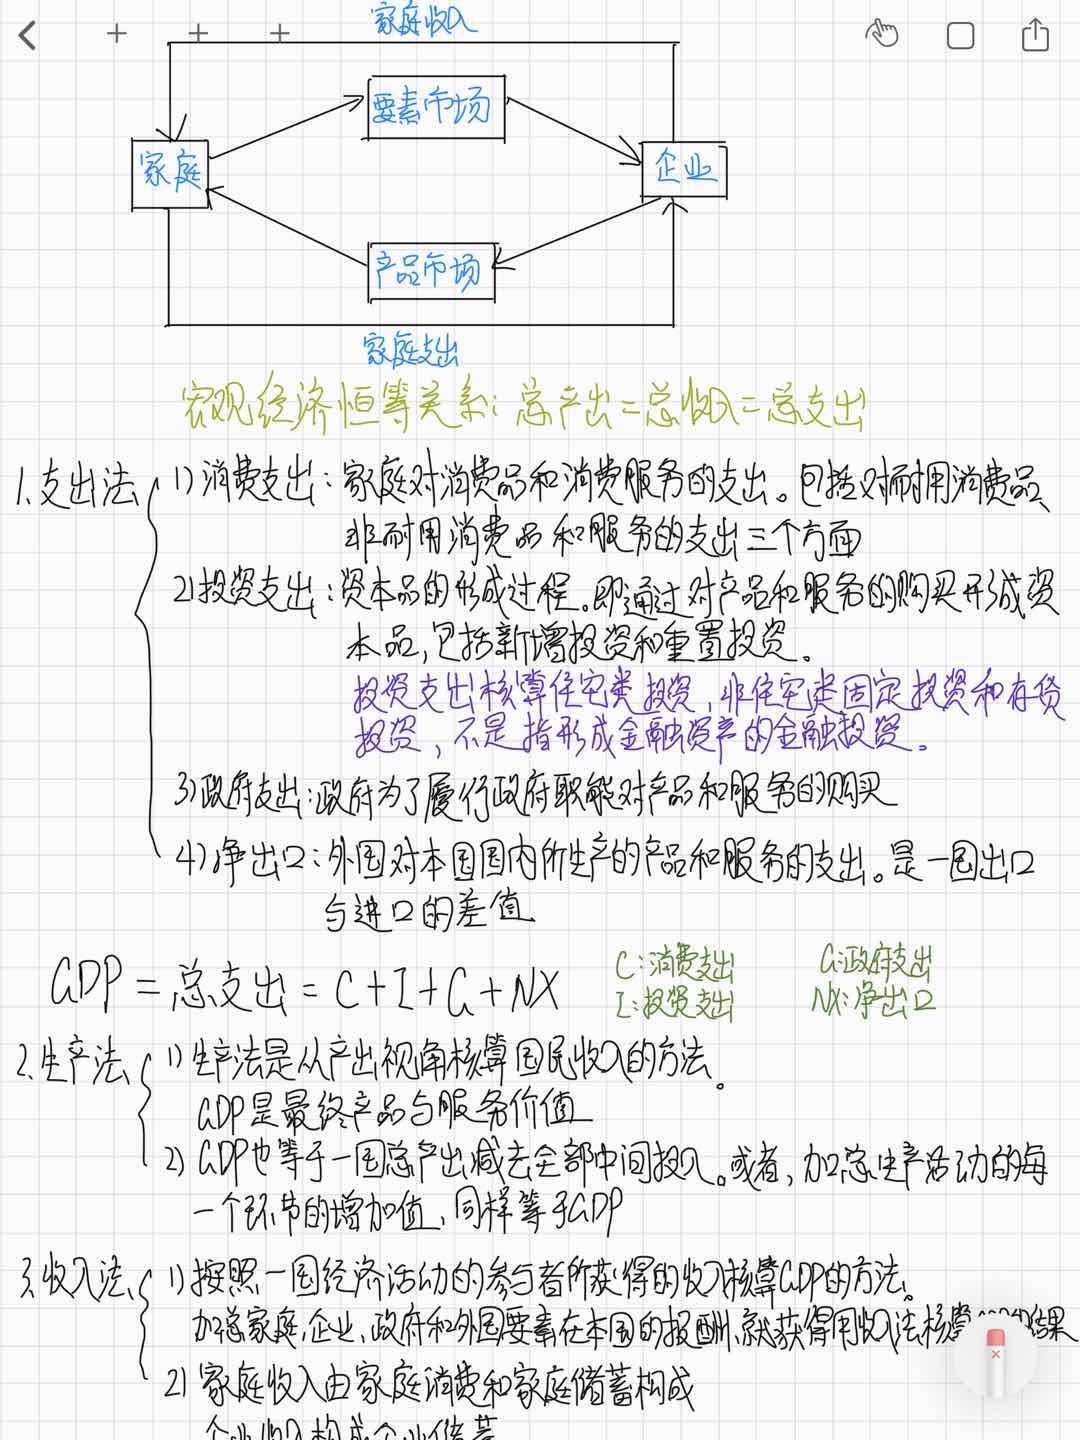 家庭收入
要素市场
家庭
企业
产品市场
家庭支出
客观经济恒等关系：总产出=总收入=总支出
1.支出法
1)消费支出：家庭对消费品和消费服务的支出。包括对耐用消费品、
非耐用消费品和服务的支出三个方面
2)投资支出：资本品的形成过程。即通过对产品和服务的购买形成资
本品，包括新增投资和重置投资。
投资支出核算住宅类投资，非住宅类固定投资和存货
投资，不是指形成金融资产的金融投资。
3)政府支出：政府为了履行政府职能对产品和服务的购买
4)净出口：外国对本国国内所生产的产品和服务的支出。是一国出口
与进口的差值
GDP=总支出=C+I+G+NX
C:消费支出 G:政府支出
I:投资支出 NX:净出口
2.生产法
1)生产法是从产出视角核算国民收入的方法。
GDP是最终产品与服务价值
2)GDP也等于一国总产出减去全部中间投入。或者，加总生产活动的每
一个环节的增加值、同样等于GDP
3.收入法
1)按照一国经济活动的参与者所获得的收入核算GDP的方法。
加总家庭、企业、政府和外国要素在本国的报酬、就获得用收入法核算 结果
2)家庭收入由家庭消费和家庭储蓄构成
企业收入构成企业储蓄